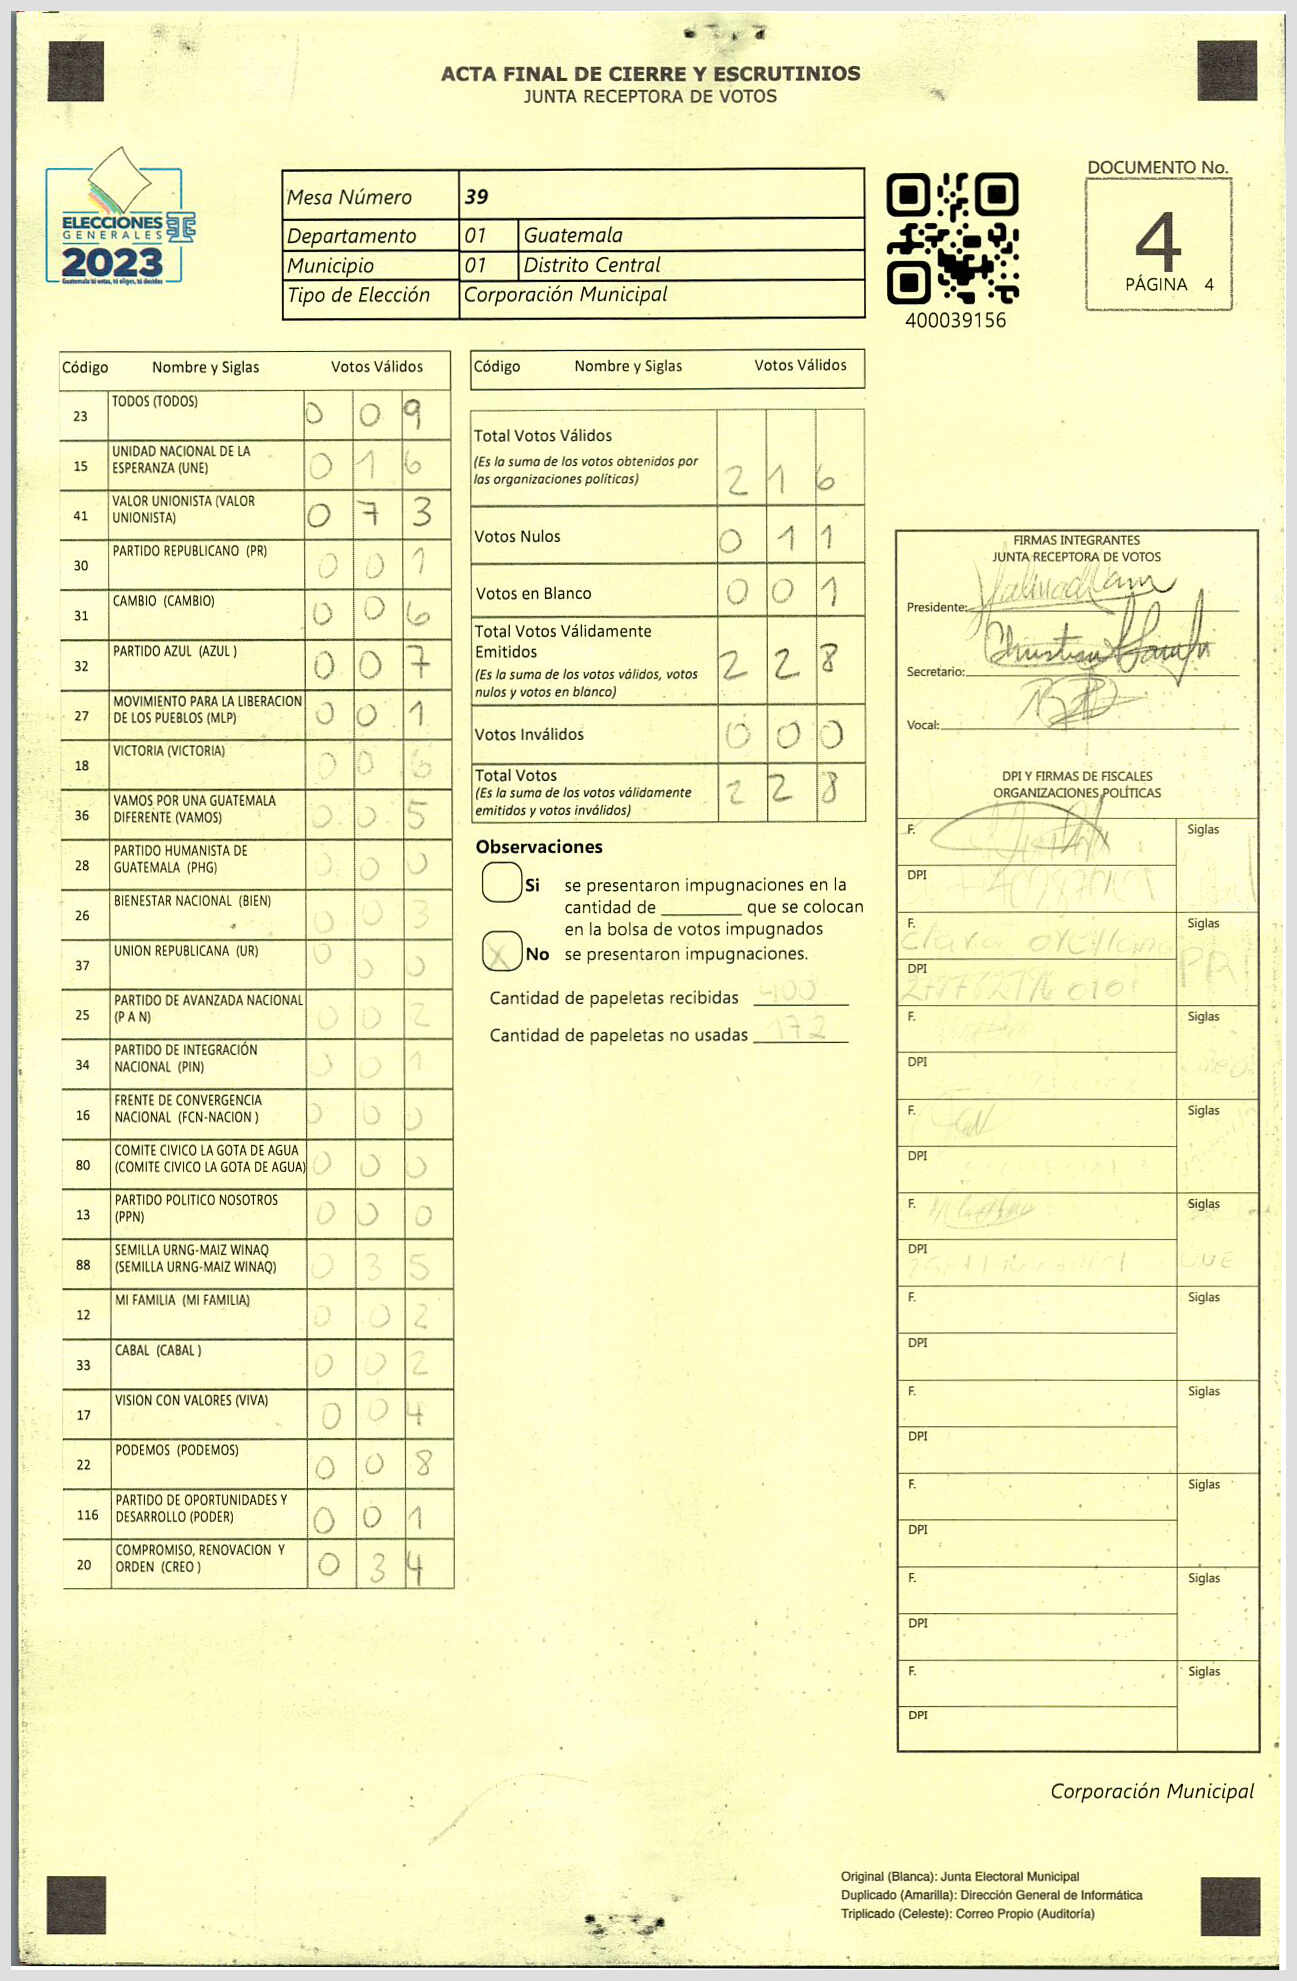 ACTA FINAL DE CIERRE Y ESCRUTINIOS
JUNTA RECEPTORA DE VOTOS
ELECCIONES
GENERALES
2023
Guatemala tú votas, tú eliges, tú decides
Mesa Número 39
Departamento 01 Guatemala
Municipio 01 Distrito Central
Tipo de Elección Corporación Municipal
400039156
DOCUMENTO No.
4
PÁGINA 4
Código Nombre y Siglas Votos Válidos
23 TODOS (TODOS) 0 0 9
15 UNIDAD NACIONAL DE LA ESPERANZA (UNE) 0 1 6
41 VALOR UNIONISTA (VALOR UNIONISTA) 0 7 3
30 PARTIDO REPUBLICANO (PR) 0 0 1
31 CAMBIO (CAMBIO) 0 0 6
32 PARTIDO AZUL (AZUL ) 0 0 7
27 MOVIMIENTO PARA LA LIBERACION DE LOS PUEBLOS (MLP) 0 0 1
18 VICTORIA (VICTORIA) 0 0 6
36 VAMOS POR UNA GUATEMALA DIFERENTE (VAMOS) 0 0 5
28 PARTIDO HUMANISTA DE GUATEMALA (PHG) 0 0 0
26 BIENESTAR NACIONAL (BIEN) 0 0 3
37 UNION REPUBLICANA (UR) 0 0 0
25 PARTIDO DE AVANZADA NACIONAL (P A N) 0 0 2
34 PARTIDO DE INTEGRACIÓN NACIONAL (PIN) 0 0 1
16 FRENTE DE CONVERGENCIA NACIONAL (FCN-NACION ) 0 0 0
80 COMITE CIVICO LA GOTA DE AGUA (COMITE CIVICO LA GOTA DE AGUA) 0 0 0
13 PARTIDO POLITICO NOSOTROS (PPN) 0 0 0
88 SEMILLA URNG-MAIZ WINAQ (SEMILLA URNG-MAIZ WINAQ) 0 3 5
12 MI FAMILIA (MI FAMILIA) 0 0 2
33 CABAL (CABAL ) 0 0 2
17 VISION CON VALORES (VIVA) 0 0 4
22 PODEMOS (PODEMOS) 0 0 8
116 PARTIDO DE OPORTUNIDADES Y DESARROLLO (PODER) 0 0 1
20 COMPROMISO, RENOVACION Y ORDEN (CREO ) 0 3 4
Código Nombre y Siglas Votos Válidos
Total Votos Válidos
(Es la suma de los votos obtenidos por
las organizaciones políticas) 2 1 6
Votos Nulos 0 1 1
Votos en Blanco 0 0 1
Total Votos Válidamente
Emitidos
(Es la suma de los votos válidos, votos
nulos y votos en blanco) 2 2 8
Votos Inválidos 0 0 0
Total Votos
(Es la suma de los votos válidamente
emitidos y votos inválidos) 2 2 8
Observaciones
Si se presentaron impugnaciones en la
cantidad de ________ que se colocan
en la bolsa de votos impugnados
X No se presentaron impugnaciones.
Cantidad de papeletas recibidas 400
Cantidad de papeletas no usadas 172
FIRMAS INTEGRANTES
JUNTA RECEPTORA DE VOTOS
Presidente:
Secretario:
Vocal:
DPI Y FIRMAS DE FISCALES
ORGANIZACIONES POLÍTICAS
F. Siglas
DPI
F. Clara Orellana Siglas
DPI PR
F. Siglas
DPI
F. Siglas
DPI
F. Siglas
DPI UNE
F. Siglas
DPI
F. Siglas
DPI
F. Siglas
DPI
F. Siglas
DPI
F. Siglas
DPI
Corporación Municipal
Original (Blanca): Junta Electoral Municipal
Duplicado (Amarilla): Dirección General de Informática
Triplicado (Celeste): Correo Propio (Auditoría)